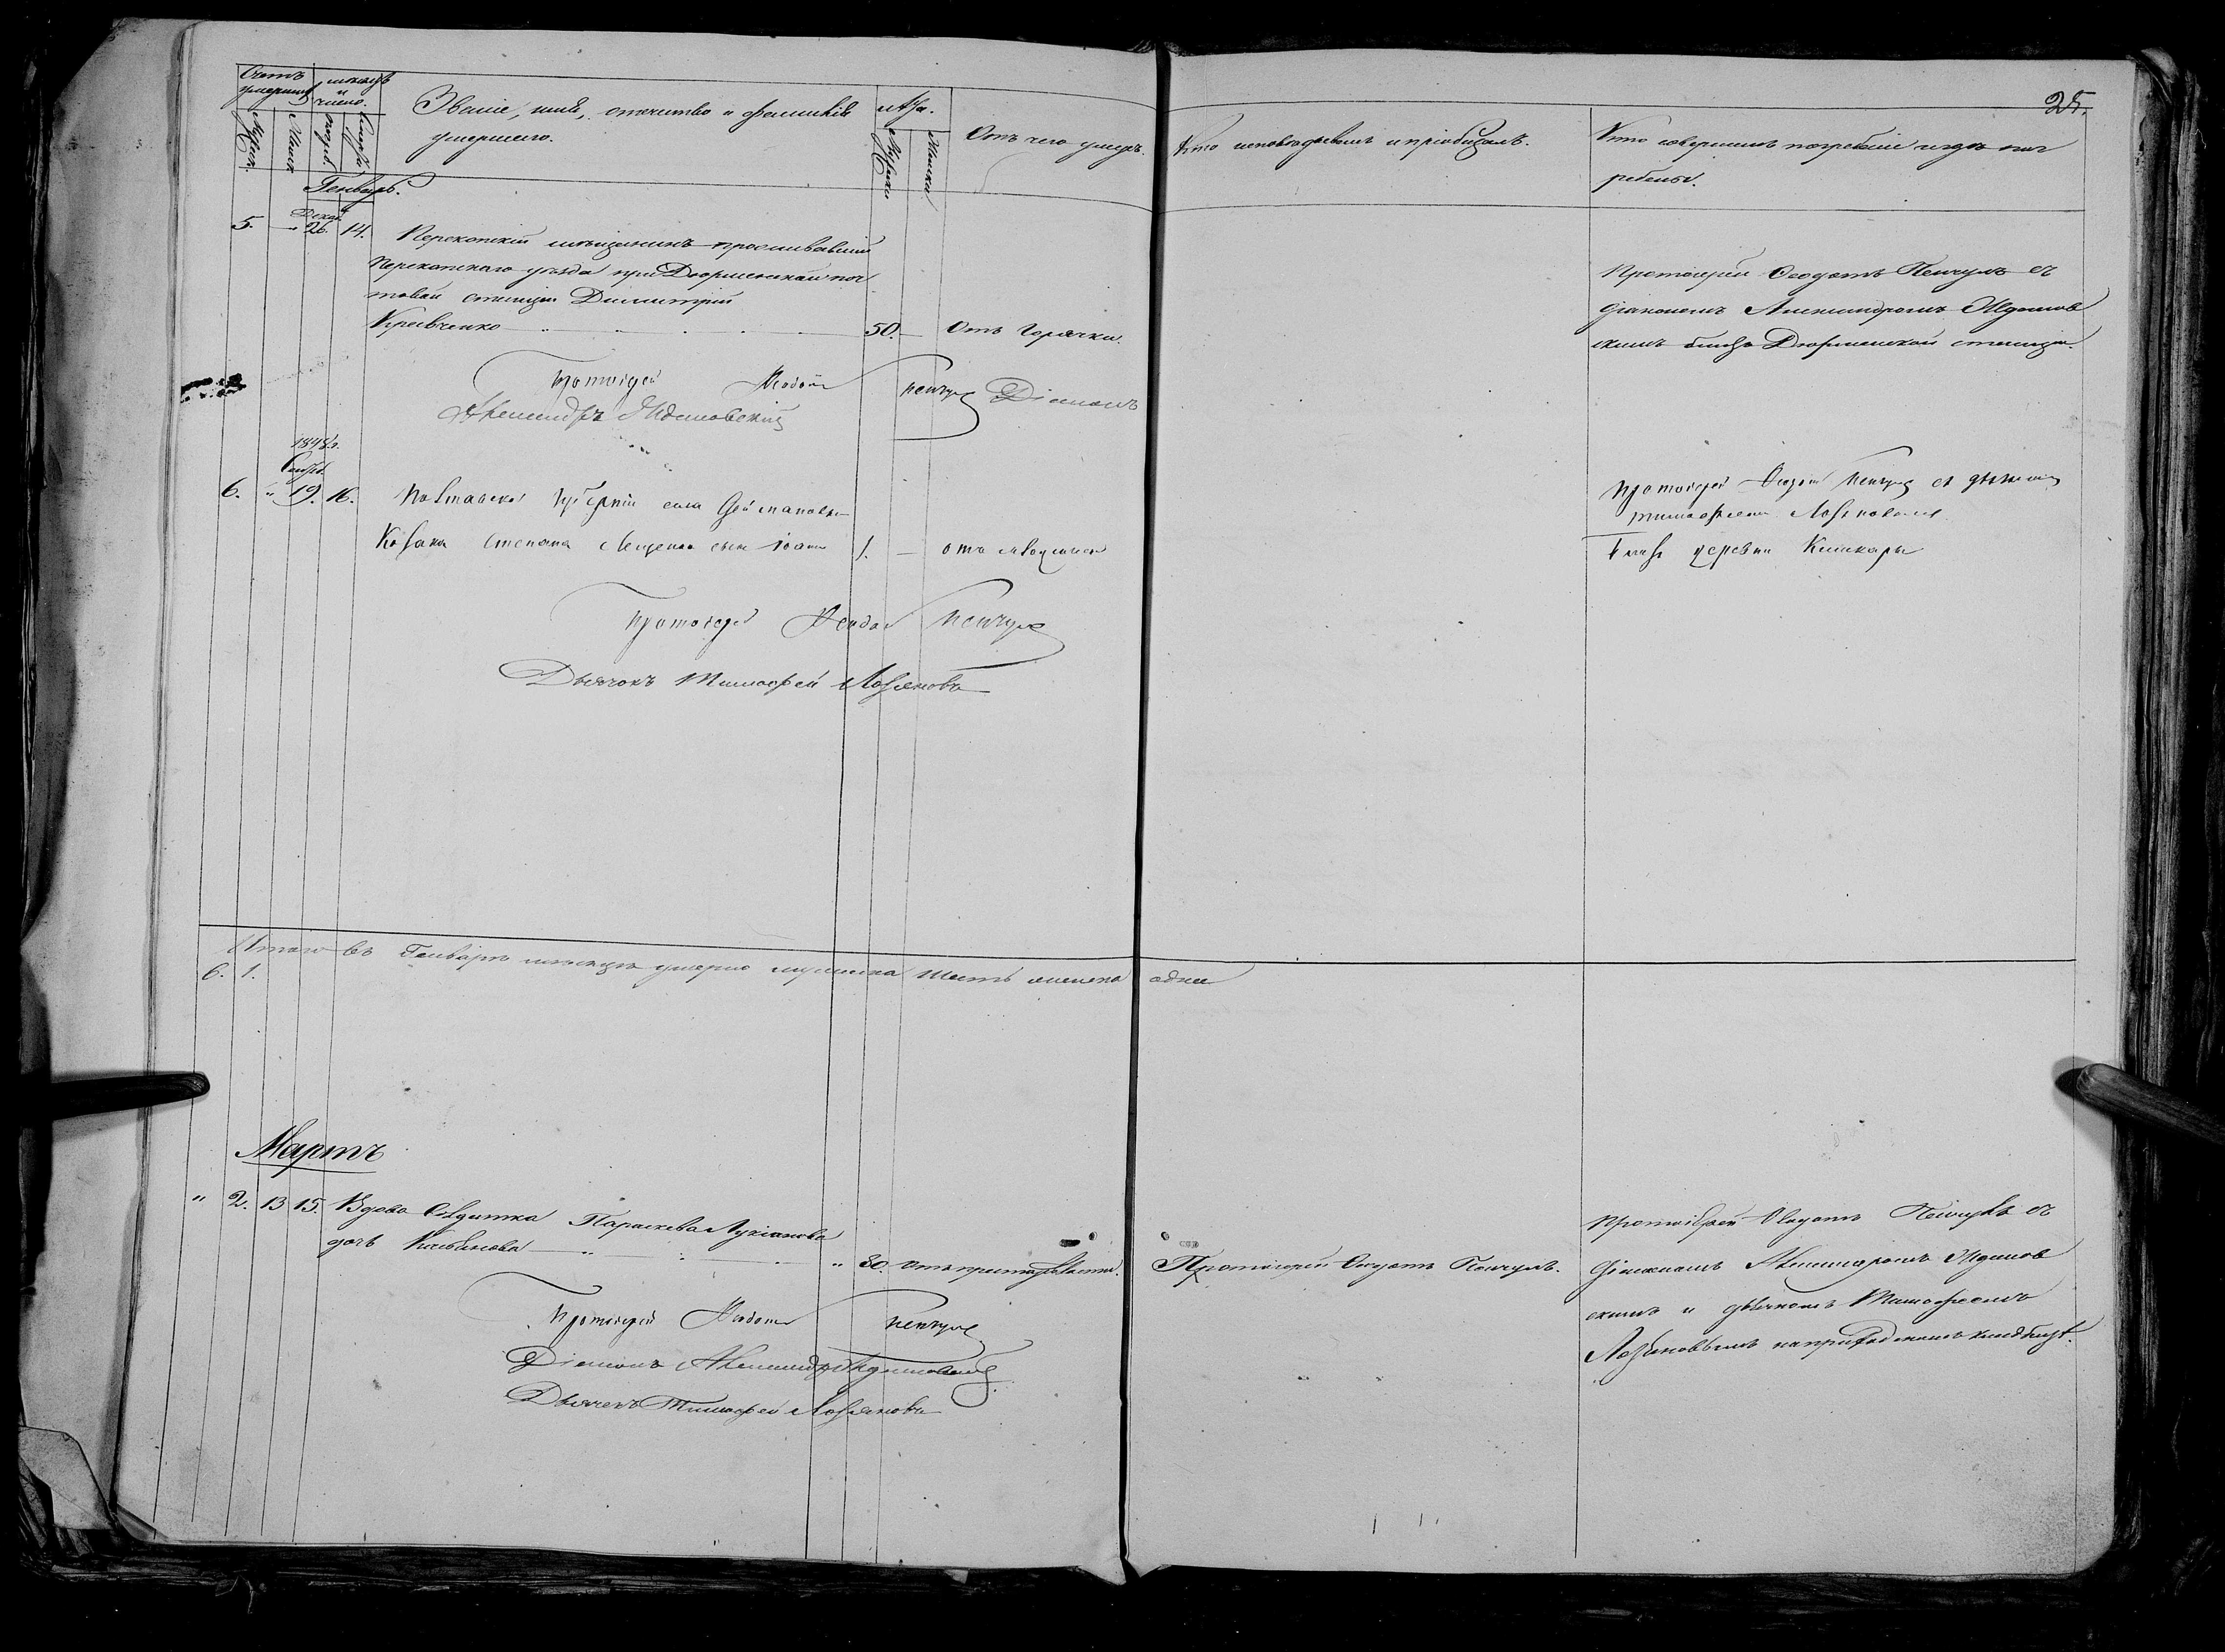 25.
Счетъ умершихъ
Мужск.
Женск.
мѣсяцъ и число.
смерти
погреб.
Званіе, имя, отчество и фамилія
умершаго.
Лѣта.
Мужска
Женска
Отъ чего умеръ.
Кто исповѣдывалъ и пріобщалъ.
Кто совершалъ погребеніе и гдѣ пог
ребены.
Генварь.
Декаб.
5. " 26. 14. Перекопскій мѣщанинъ проживавшій
Перекопскаго уѣзда при Дюрменской поч
товой станціи Димитрій
Кравченко 50. — Отъ горячки.
Протоіерей Ѳеодотъ Пенчулъ съ
діакономъ Александромъ Ждановскимъ
скимъ близъ Дюрменской станціи.
Протоіерей Ѳеодотъ Пенчулъ Діаконъ
Александръ Ждановскій
1848 г.
6. " 19. 16. Полтавской губерніи села
Козака Степана Лещенка сынъ Іоаннъ 1. —
Протоіерей Ѳеодотъ Пенчулъ съ дьячкомъ
Тимофеемъ Лозяновымъ
близъ деревни
Протоіерей Ѳеодотъ Пенчулъ
Дьячокъ Тимофей Лозяновъ
Итого въ Генварѣ мѣсяцѣ умерло мужеска шесть женска одна
6. 1.
Мартъ
" 2. 13 15. Вдова Солдатка Параскева Лукіанова
дочь " 80.
Протоіерей Ѳеодотъ Пенчулъ.
Протоіерей Ѳеодотъ Пенчулъ съ
діакономъ Александромъ Жданов
скимъ и дьячкомъ Тимофеемъ
Лозяновымъ на приходскомъ кладбищѣ.
Протоіерей Ѳеодотъ Пенчулъ
Діаконъ Александръ Ждановскій
Дьячекъ Тимофей Лозяновъ